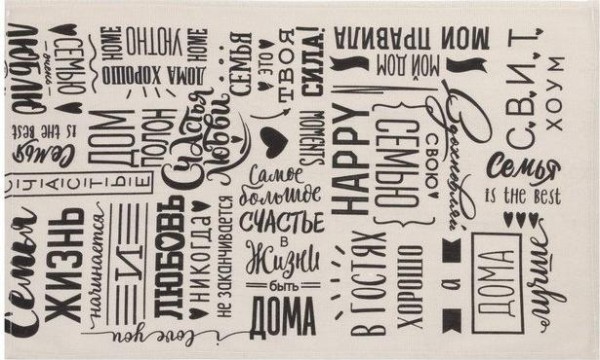 ЛЮБЛЮ
—очень—
СЕМЬЮ
HOME
УЮТНО
HOME
ДОМА ХОРОШО
СЕМЬЯ
ЭТО
ТВОЯ
СИЛА!
МОИ ПРАВИЛА
МОЙ ДОМ
С.В.И.Т.
ХОУМ
Семья
is the best
ДОМ
ПОЛОН
Счастья
Любви
MOMENTS
HAPPY
СЕМЬЮ
СВОЮ
Вдохновляй
Семья
is the best
СЧАСТЬЕ
Самое
большое
СЧАСТЬЕ
в
Жизни
быть
ДОМА
Семья
ЖИЗНЬ
начинается
И
ЛЮБОВЬ
НИКОГДА
не заканчивается
i love you
В ГОСТЯХ
ХОРОШО
а
ДОМА
лучше